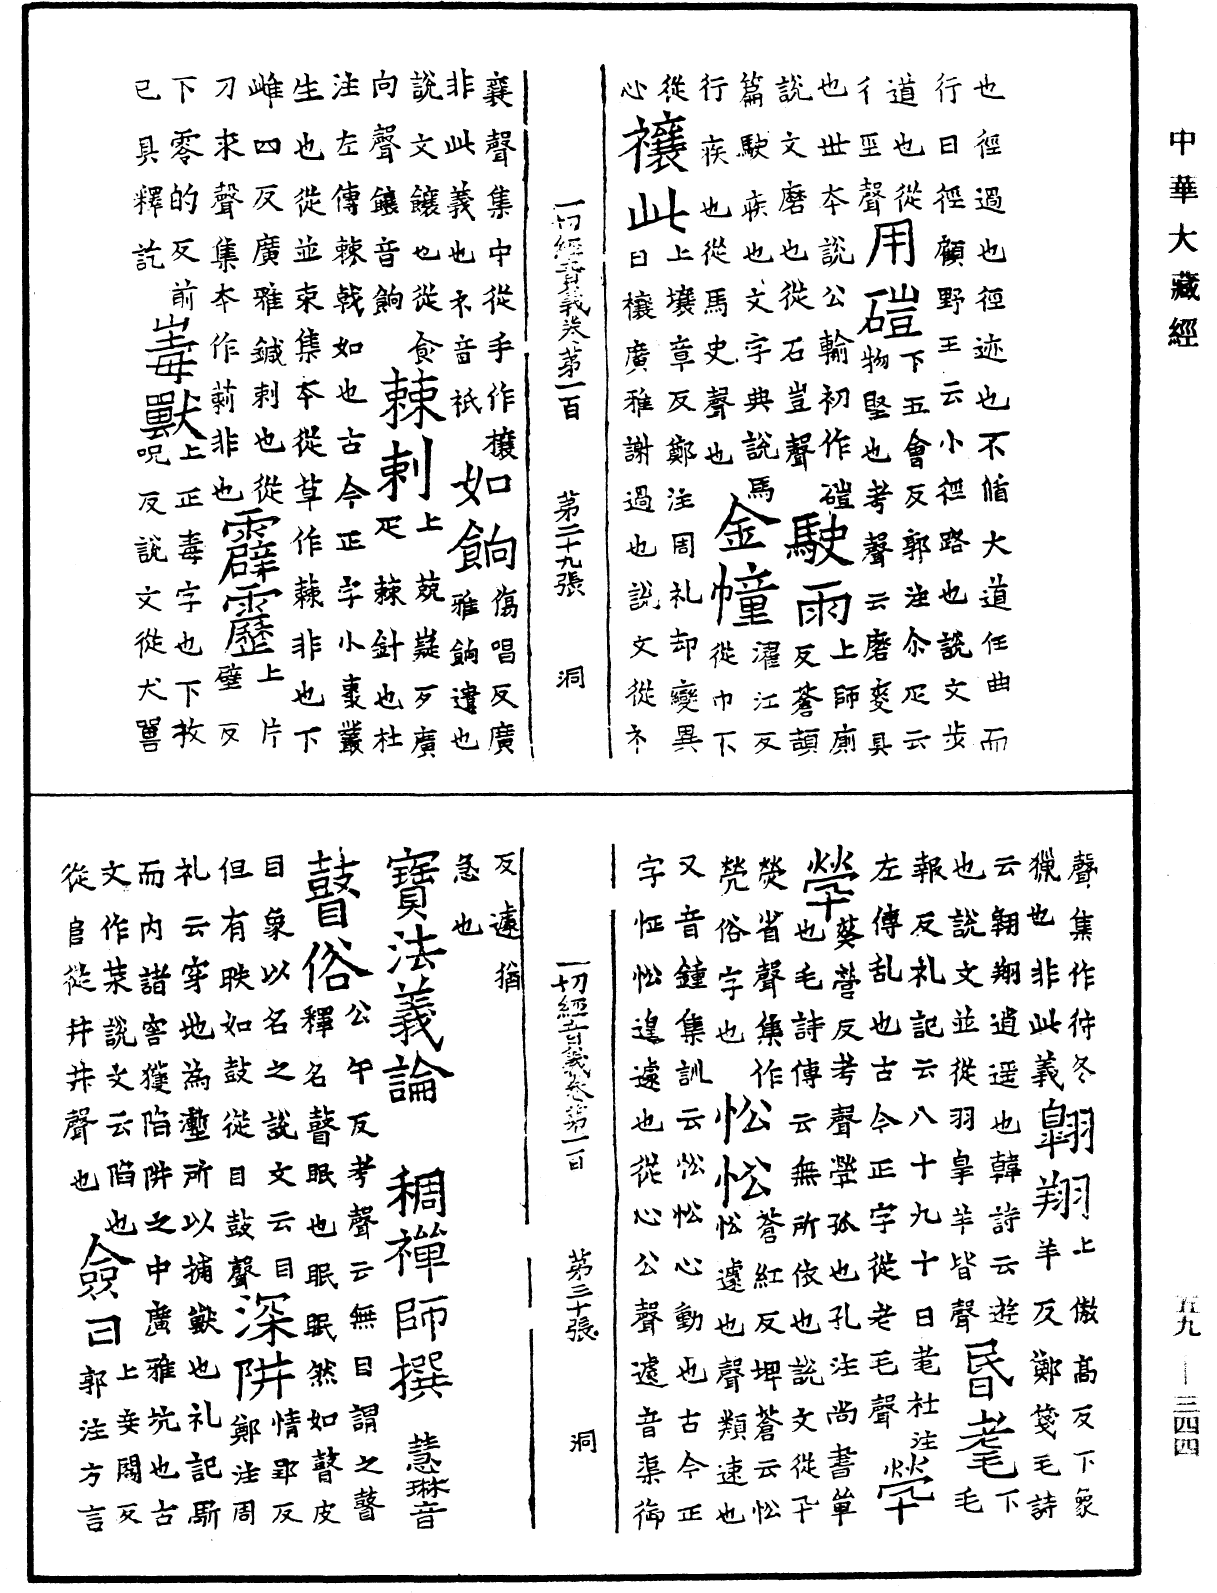 中華大藏經
也徑過也徑迹也不循大道任曲而
行曰徑顧野王云小徑路也說文步
道也從彳巠聲
用磑
下五會反郭注尒疋云
物堅也考聲云磨麥具
也世本說公輸初作磑
說文磨也從石豈聲
駛雨
上師廁反蒼頡
篇駛疾也文字典說馬
行疾也從馬史聲也
金幢
濯江反
從巾下
從心
禳此
上壤章反鄭注周礼却變異
曰禳廣雅謝過也說文從礻
一切經音義卷第一百 第二十九張 洞
襄聲集中從手作攘
非此義也礻音祇
如餉
傷唱反廣
雅餉遺也
說文饟也從食
向聲饟音餉
棘刺
上兢嶷反廣
疋棘針也杜
注左傳棘戟如也古今正字小棗叢
生也從並朿集本從草作蕀非也下
雌四反廣雅鍼刺也從
刀朿聲集本作莿非也
霹靂
上片
壁反
下零的反前
已具釋訖
毒獸
上正毒字也下收
呪反說文從犬嘼
聲集作狩冬
獵也非此義
翱翔
上傲高反下象
羊反鄭箋毛詩
云翱翔逍遥也韓詩云遊
也說文並從羽皐羊皆聲
昬耄
下
毛
報反礼記云八十九十曰耄杜注
左傳乱也古今正字從老毛聲
煢
煢
葵營反考聲煢孤也孔注尚書單
也毛詩傳云無所依也說文從卂
熒省聲集作
焭俗字也
忪忪
蒼紅反埤蒼云忪
忪遽也聲類速也
又音鍾集訓云忪忪心動也古今正
字怔忪遑遽也從心公聲遽音渠御
反遽猶
急也
一切經音義卷第一百 第三十張 洞
寶法義論 稠禪師撰 慧琳音
瞽俗
公午反考聲云無目謂之瞽
釋名瞽眠也眠眠然如瞽皮
目象以名之說文云目情耶反
但有眹如鼓從目鼓聲
深阱
鄭注周
礼云穿地為壍所以捕獸也礼記馸
而內諸客獲陷阱之中廣雅坑也古
文作菜說文云陷也
從𨸏從井井聲也
僉曰
上妾閻反
郭注方言
五九—三四四